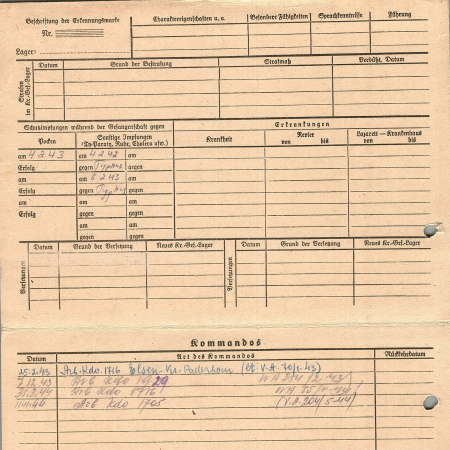 Beschriftung der Erkennungsmarke
Nr.
Lager:
Charaktereigenschaften u. a.
Besondere Fähigkeiten
Sprachkenntnisse
Führung
Strafen im Kr.-Gef.-Lager
Datum
Grund der Bestrafung
Strafmaß
Verbüßt, Datum
Schutzimpfungen während der Gefangenschaft gegen
Erkrankungen
Pocken
Sonstige Impfungen
(Ty-Paraty, Ruhr, Cholera usw.)
Krankheit
Revier
von bis
Lazarett — Krankenhaus
von bis
am 4 2 43 am 4 2 42 am
Erfolg gegen Typhus gegen
am am 8 2 43 am
Erfolg gegen Typhus gegen
am am am
Erfolg gegen gegen
am am
gegen gegen
Versetzungen
Datum
Grund der Versetzung
Neues Kr.-Gef.-Lager
Versetzungen
Datum
Grund der Versetzung
Neues Kr.-Gef.-Lager
Kommandos
Datum
Art des Kommandos
Rückkehrdatum
25.2.43 Arb. Kdo. 1716 Elsen-Kr. Paderborn
7.12.43 Arb Kdo
Arb Kdo
Arb Kdo 1705